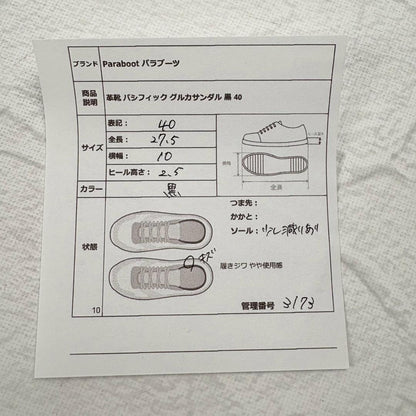 ブランド Paraboot パラブーツ
商品
説明 革靴 パシフィック グルカサンダル 黒 40
サイズ
表記： 40
全長： 27.5
横幅： 10
ヒール高さ： 2.5
横幅
全長
カラー 黒
状態
つま先：
かかと：
ソール： 少し減りあり
キズ
履きジワ やや使用感
10
管理番号 3173